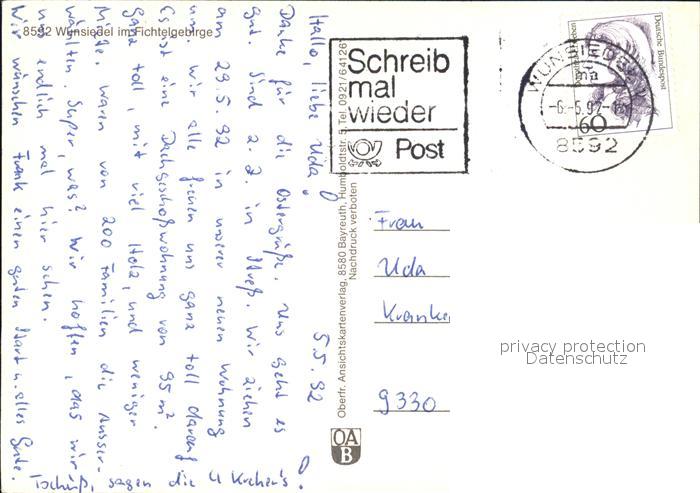 8592 Wunsiedel im Fichtelgebirge
Hallo, liebe Uda!
5.5.92
Danke für die Ostergrüße. Uns geht es
gut. Sind z. Z. in Streß. Wir ziehen
am 29.5.92 in unserer neuen Wohnung
um. Wir alle freuen uns ganz toll darauf.
Es ist eine Dachgeschoßwohnung von 95 m².
Ganz toll, mit viel Holz, und weniger
Miete. Waren von 200 Familien die Ausser-
wählten. Super, was? Wir hoffen, das wir
uns endlich mal hier sehen.
Wir wünschen Frank einen guten Start u. alles Gute.
Tschüß, sagen die 4 Krehen's!
Oberfr. Ansichtskartenverlag, 8580 Bayreuth, Humboldtstr. 5, Tel. 0921/64126
Nachdruck verboten
OA
B
Schreib
mal
wieder
Post
Deutsche Bundespost
60
WUNSIEDEL
ma
-6.-5.92-
8592
Frau
Uda
Kranke
9330
privacy protection
Datenschutz